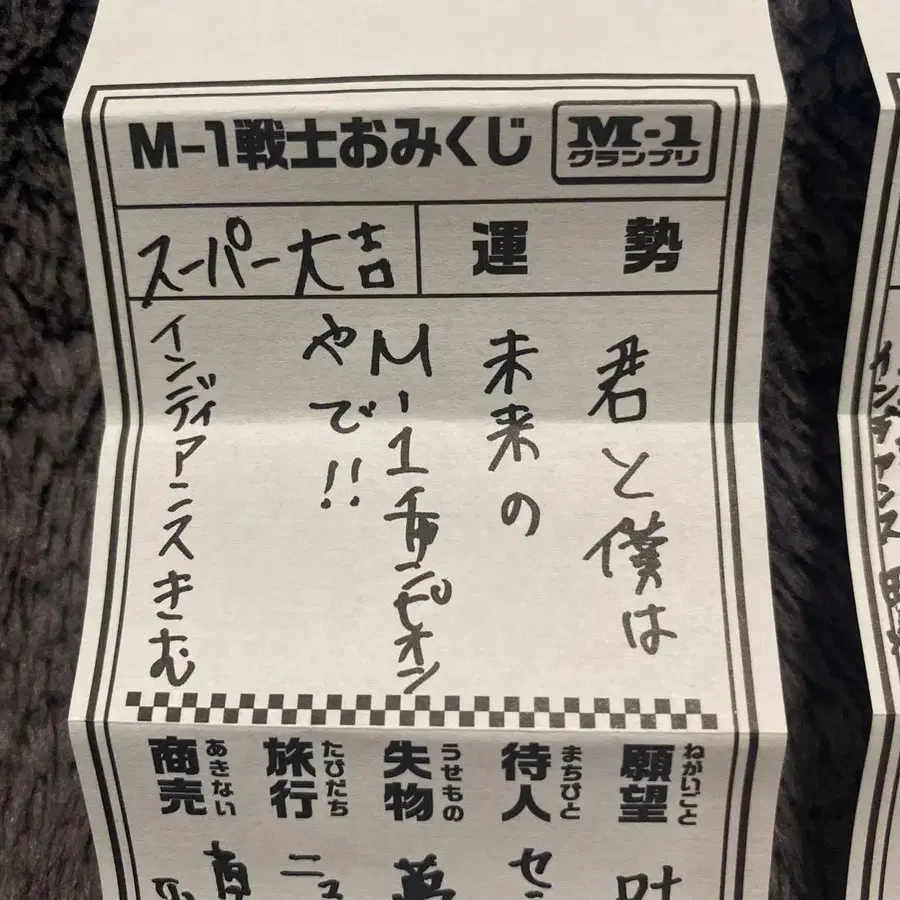 M-1戦士おみくじ
M-1
グランプリ
運勢
スーパー大吉
君と僕は
未来の
M-1チャンピオン
やで!!
インディアンスきむ
ねがいごと
願望
まちびと
待人
セ
うせもの
失物
たびだち
旅行
ニュ
あきない
商売